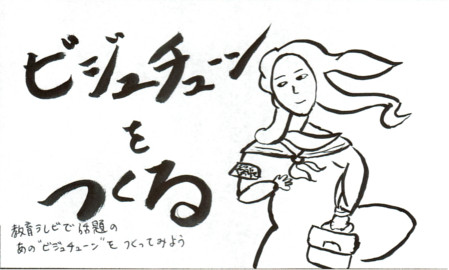 ビジュチューン
を
つくる
教育テレビで話題の
あの"ビジュチューン"を つくってみよう